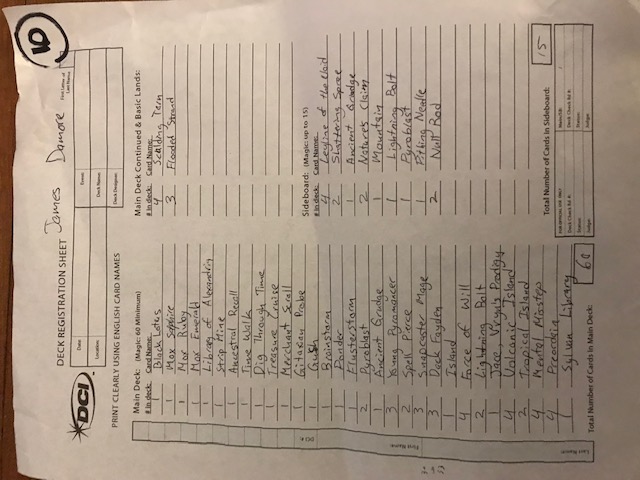 DECK REGISTRATION SHEET James Damore
First Letter of Last Name
DCI
Date: Event:
Location: Deck Name:
Deck Designer:
PRINT CLEARLY USING ENGLISH CARD NAMES
Main Deck: (Magic: 60 Minimum)
# in deck: Card Name:
1 Black Lotus
1 Mox Saphire
1 Mox Ruby
1 Mox Emerald
1 Library of Alexandria
1 Strip Mine
1 Ancestral Recall
1 Time Walk
1 Dig Through Time
1 Treasure Cruise
1 Merchant Scroll
1 Gitaxian Probe
1 Gush
1 Brainstorm
1 Ponder
1 Flusterstorm
2 Pyroblast
1 Ancient Grudge
3 Young Pyromancer
2 Spell Pierce
3 Snapcaster Mage
3 Dack Fayden
1 Island
4 Force of Will
2 Lightning Bolt
1 Jace, Vryn's Prodigy
4 Volcanic Island
2 Tropical Island
4 Mental Misstep
4 Preordain
1 Sylvan Library
Total Number of Cards in Main Deck: 60
Main Deck Continued & Basic Lands:
# in deck: Card Name:
4 Scalding Tarn
3 Flooded Strand
Sideboard: (Magic: up to 15)
# in deck: Card Name:
4 Leyline of the Void
2 Shattering Spree
1 Ancient Grudge
2 Nature's Claim
1 Mountain
1 Lightning Bolt
1 Pyroblast
1 Pithing Needle
2 Null Rod
Total Number of Cards in Sideboard: 15
FOR OFFICIAL USE ONLY Main/SB: /
Deck Check Rd #: Deck Check Rd #:
Status: Status:
Judge: Judge:
DCI #:
First Name:
Last Name: